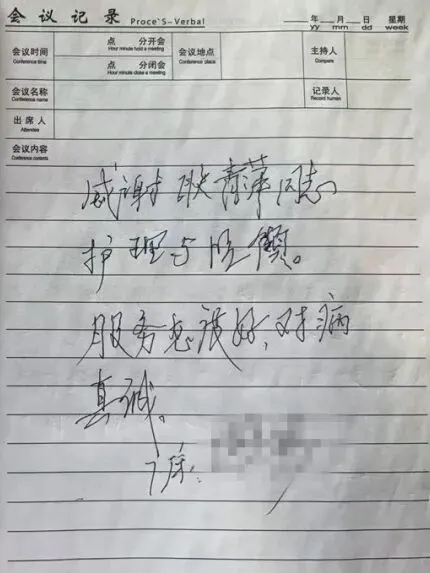 会议记录 Proce`S-Verbal
年 月 日 星期
yy mm dd week
会议时间 点 分开会 会议地点 主持人
Conference time Hour minute hold a meeting Conference place Compere
点 分闭会
Hour minute close a meeting
会议名称 记录人
Conference name Record human
出席人
Attendee
会议内容
Conference contents
感谢 同志
护理与
服务态度好,对病
真诚。
7床: